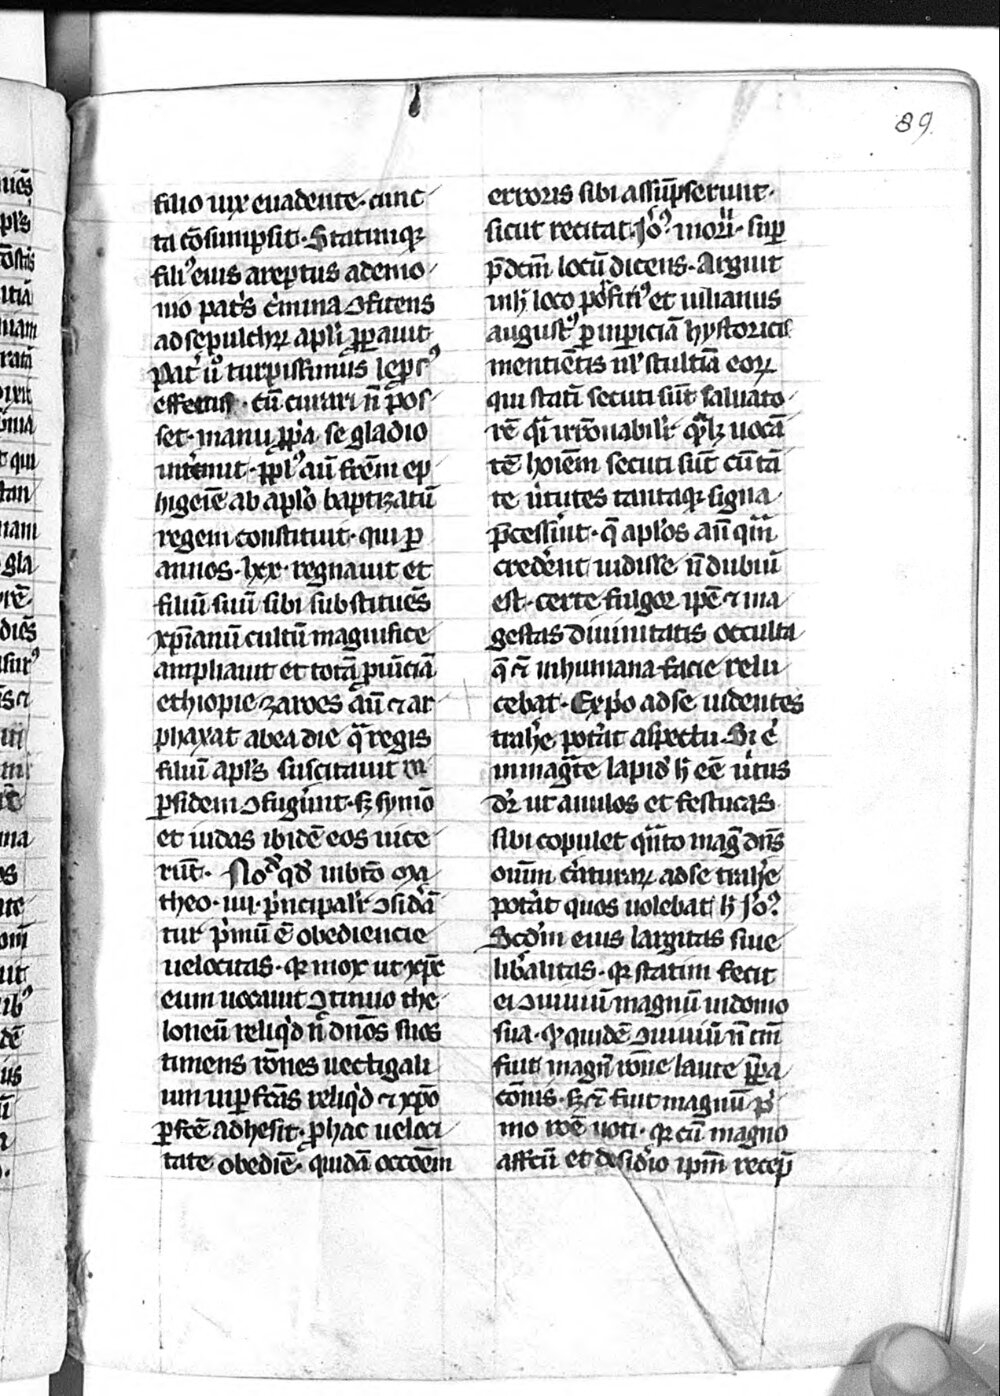 89.
filio uix euadente · cunc
ta ꝯ̃sumpsit · Statimqꝫ
filiꝰ eius areptus a demo
nio pat̓s c̓mina ꝯfitens
ad sepulchrꝝ apl̓i ꝓperauit
Pat̓ u̾o turpissimus lep̃sꝰ
effectus · cũ curari ñ pos
set · manu ꝓp̓a se gladio
int̓emit · ppl̓s aũ frẽm ep
higeie ab apl̓o baptizatũ
regem constituit · qui ꝑ
annos · lxx · regnauit et
filiũ suũ sibi substituẽs
xp̃ianũ cultũ magnifice
ampliauit et totã ꝓuĩciã
ethiopie zaroes aũ ⁊ ar
phaxat ab ea die q̃ regis
filiũ apl̓s suscitauit in
ꝑsidem ꝯfugi̾unt · sꝫ symõ
et iudas ibidẽ eos uice
rũt · Noᵈᵘ qd̓ in bt̃o ma
theo · iiii · p̓ncipal̓r ꝯsid̾ã
tur p̓mũ ẽ obediencie
uelocitas · qꝛ mox ut xp̃c
eum uocauit ꝯtinuo the
loneũ reliq̓d ñ dñõs suos
timens rõnes uectigali
um inꝑfcãs reliq̓d ⁊ xp̃o
ꝑfcẽ adhesit · ꝓ hac ueloci
tate obediẽ · quidã occõem
erroris sibi assũpserunt ·
sicut recitat · Jo̾ꝰ · super
p̃dcm̃ locũ dicens · Arguit
in h̾ loco porfiriꝰ et iulianus
augustꝰ ꝑ inpiciã hystorici
mentiẽtis ul̓ stultiã eoꝝ
qui statĩ secuti sũt saluato
rẽ qͥ irrõnabil̓r qͣlꝫ uocã
tẽ hoiẽm secuti sũt cũ tã
te u̓tutes tantaqꝫ signa
p̃cesser̃t · q̃ apl̓os añ qm̃
crederent uidisse ñ dubiũ
est · certe fulgor ip̃e ⁊ ma
gestas diuinitatis occulta
q̃ ⁊ in humana facie relu
cebat · Ex p̓o ad se uidentes
trah̾e pot̾at aspectu · Si ẽ
in magn̾te lapid̓ h̾ eẽ u̓tus
dr̃ ut anulos et festucas
sibi copulet qñto mag̾ dñs
oũm c̓aturarꝝ ad se trah̾e
pot̾at quos uolebat h̾ Jo̾ꝰ
Scd̓m eius largitas siue
lib̾alitas · qꝛ statim fecit
ei ꝯuiuiũ magnũ in domo
sua · qꝛ quidẽ ꝯuiuiũ ñ tm̃
fuit magñ rõne laute p̃pa
cõnis · sꝫ ⁊ fuit magnũ p̓
mo rõe uoti · qꝛ cũ magno
affcũ et desid̾io ip̃m recep̃